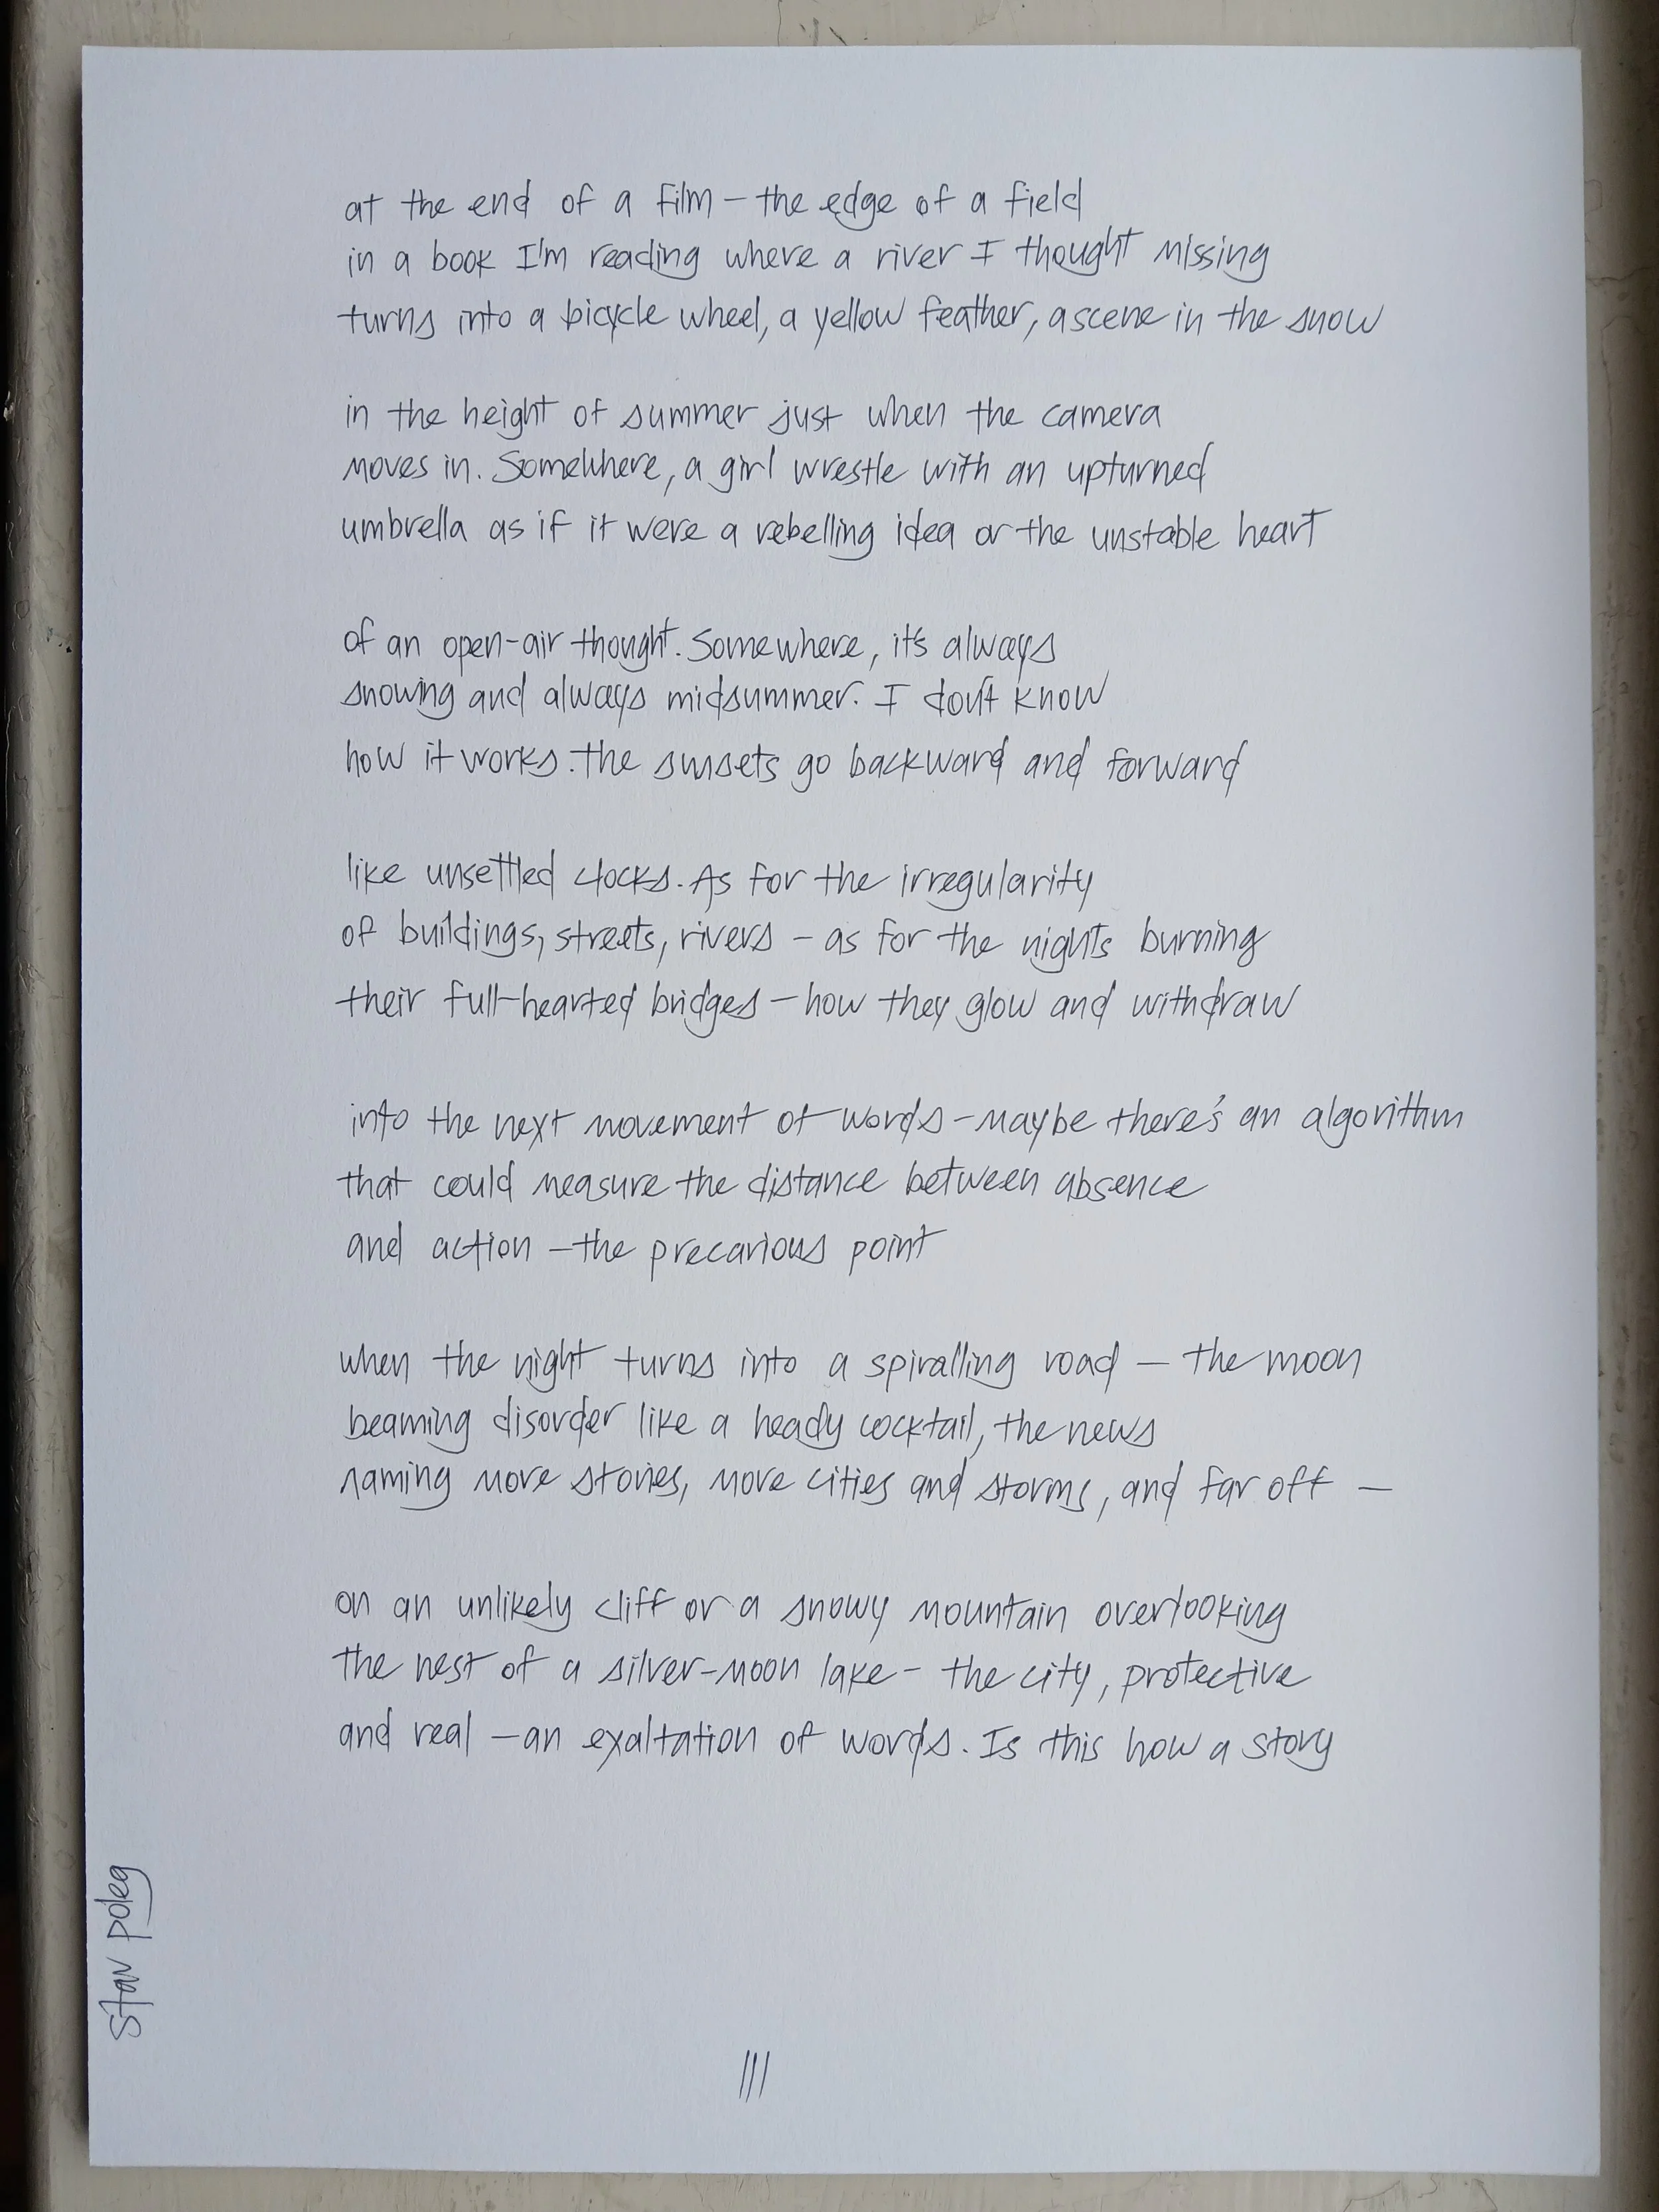 at the end of a film – the edge of a field
in a book I'm reading where a river I thought missing
turns into a bicycle wheel, a yellow feather, a scene in the snow
in the height of summer just when the camera
moves in. Somewhere, a girl wrestle with an upturned
umbrella as if it were a rebelling idea or the unstable heart
of an open-air thought. Somewhere, it's always
snowing and always midsummer. I don't know
how it works. the sunsets go backward and forward
like unsettled clocks. As for the irregularity
of buildings, streets, rivers – as for the nights burning
their full-hearted bridges – how they glow and withdraw
into the next movement of words – maybe there's an algorithm
that could measure the distance between absence
and action – the precarious point
when the night turns into a spiralling road – the moon
beaming disorder like a heady cocktail, the news
naming more stories, more cities and storms, and far off –
on an unlikely cliff or a snowy mountain overlooking
the nest of a silver-moon lake – the city, protective
and real – an exaltation of words. Is this how a story
Stav Poleg
III